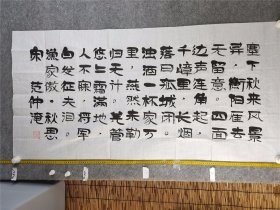 塞下秋来风景
异，衡阳雁去
无留意。四面
边声连角起，
千嶂里，长烟
落日孤城闭。
浊酒一杯家万
里，燕然未勒
归无计。羌管
悠悠霜满地，
人不寐，将军
白发征夫泪。
渔家傲·秋思
宋 范仲淹